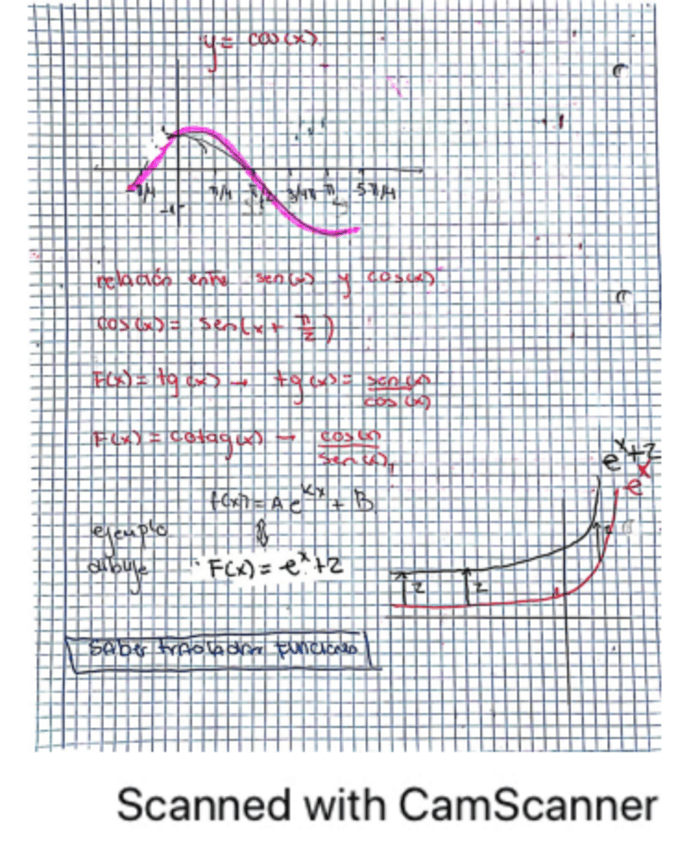 y = cos(x)
π/4 π/4 π/2 3/4π π 5π/4
-1
relación entre sen(x) y cos(x)
cos(x) = sen(x + π/2)
F(x) = tg(x) → tg(x) = sen(x)/cos(x)
F(x) = cotag(x) → cos(x)/sen(x)
f(x) = A e^kx + B
ejemplo
dibuje F(x) = e^x + 2
e^x+2
e^x
2 2
SAber trasladar funciones
Scanned with CamScanner